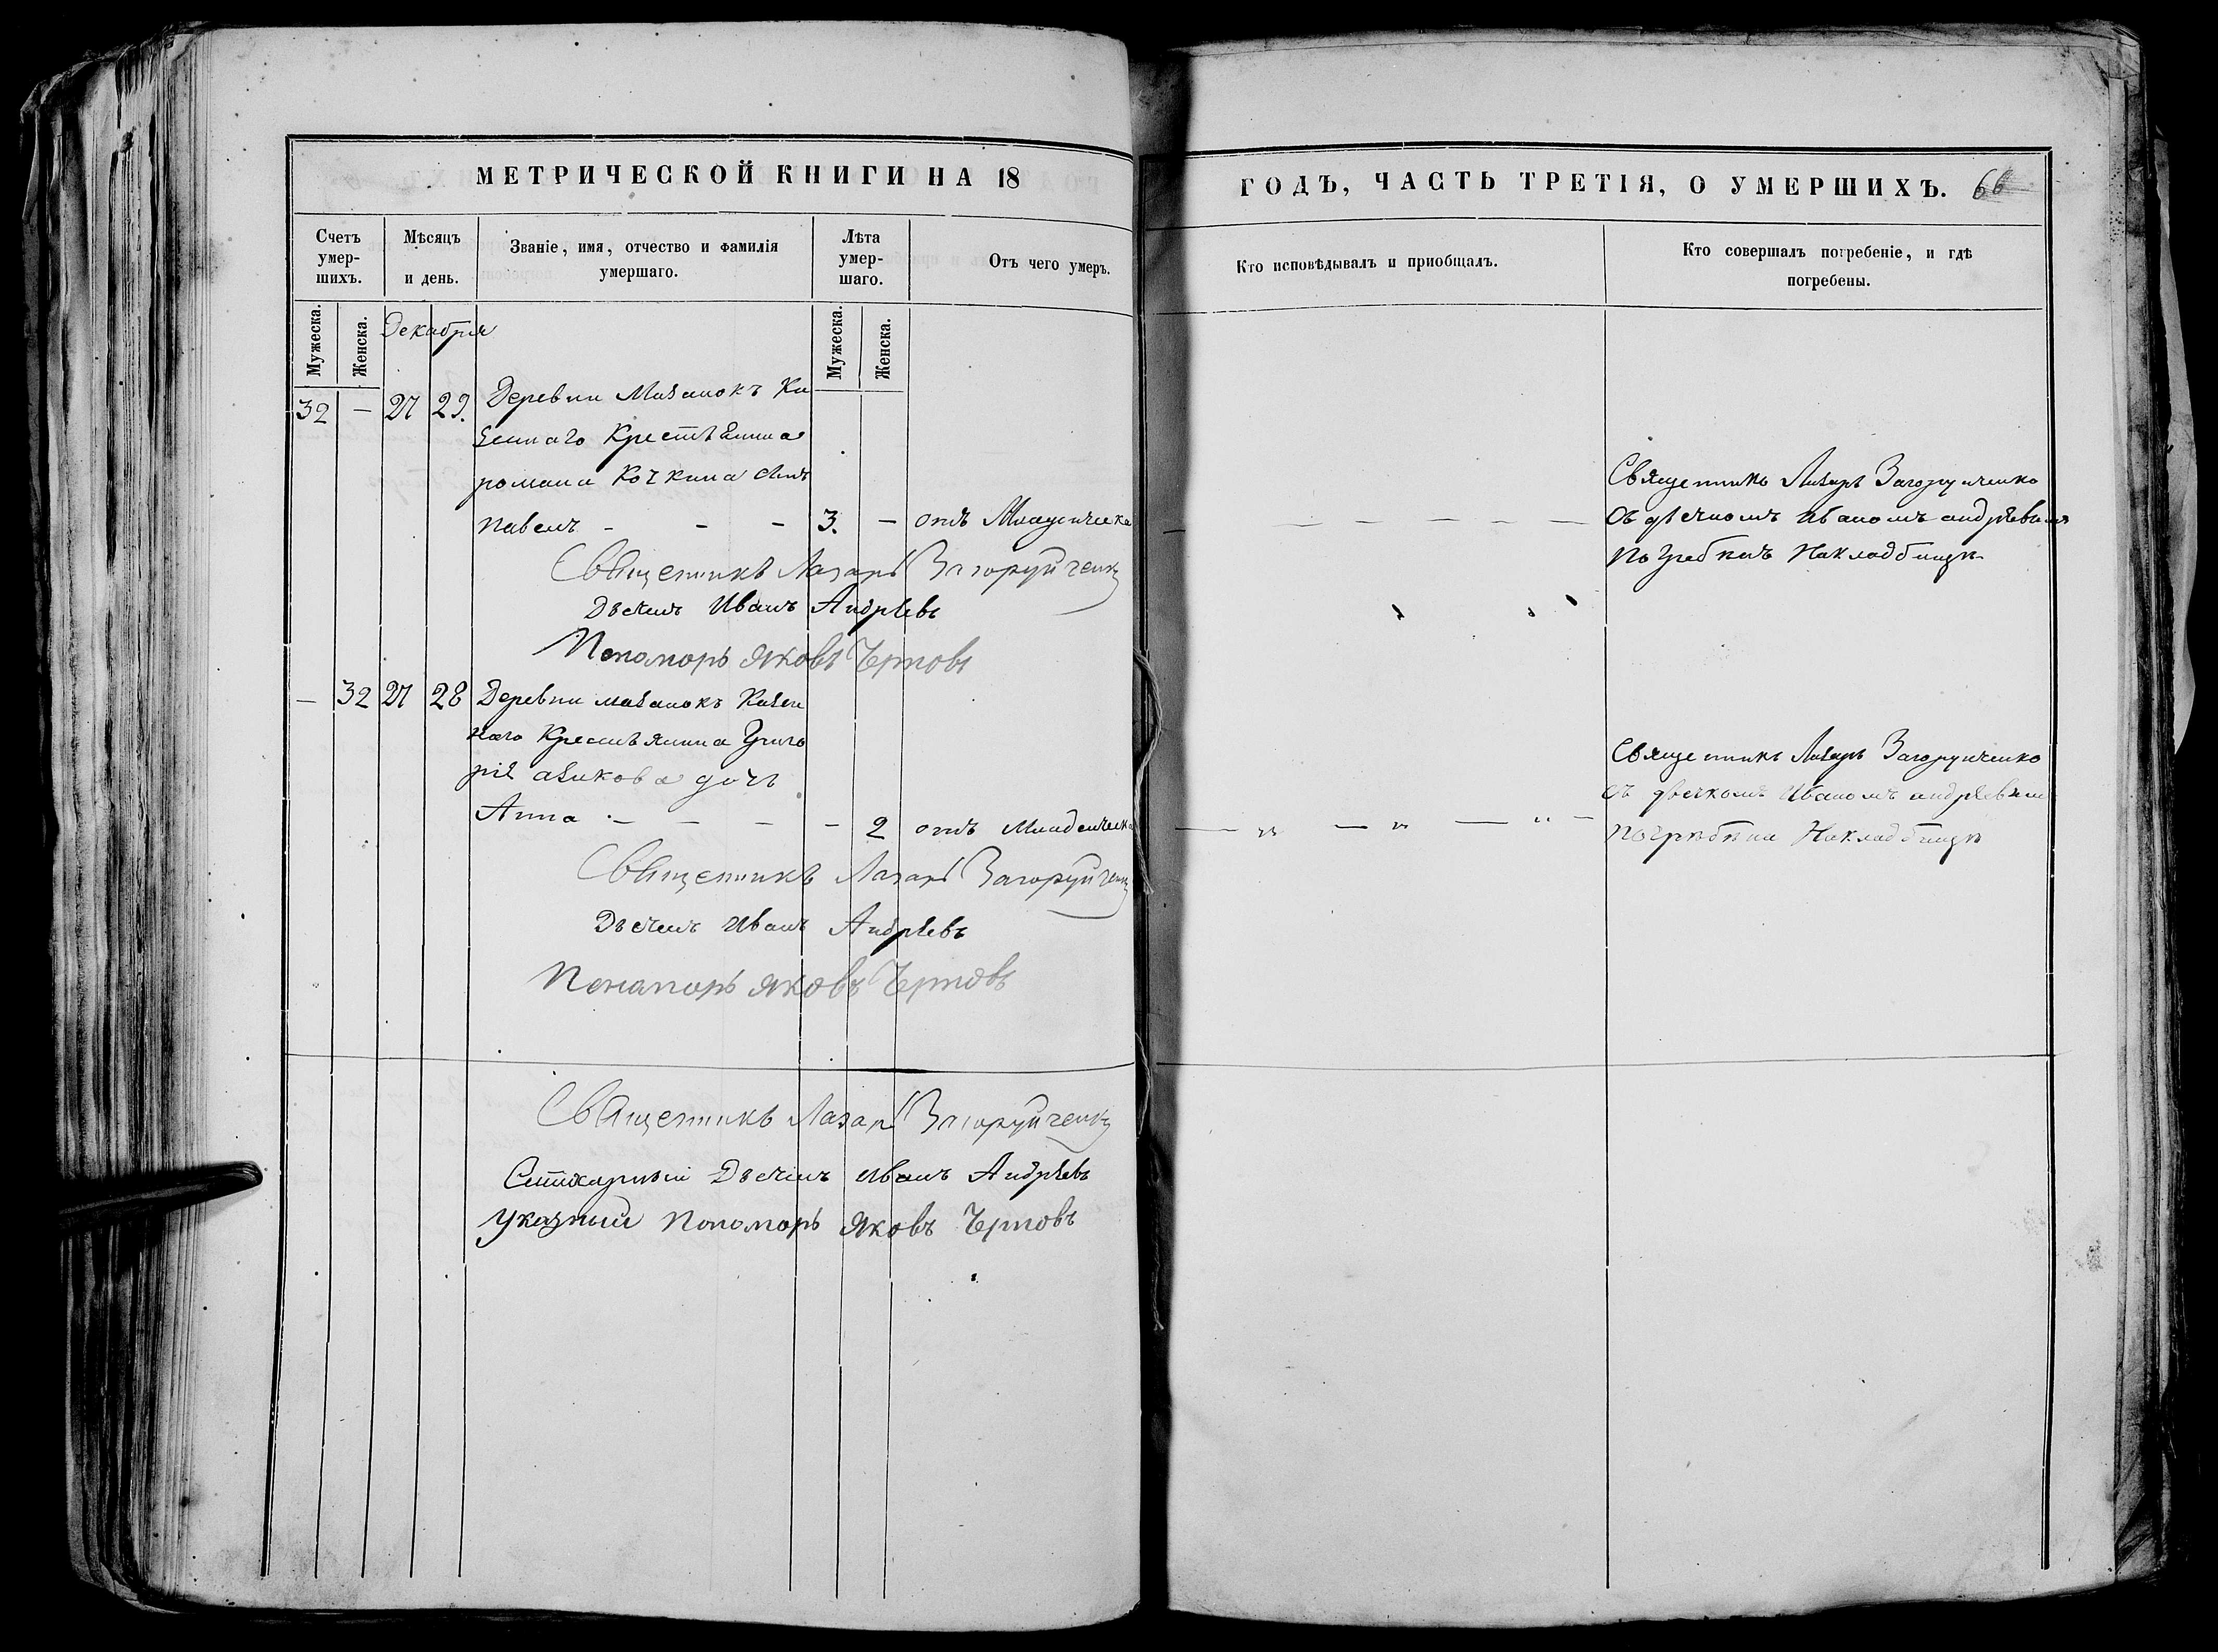 МЕТРИЧЕСКОЙ КНИГИ НА 18
ГОДЪ, ЧАСТЬ ТРЕТІЯ, О УМЕРШИХЪ. 66
Счетъ умер-шихъ.
Мѣсяцъ и день.
Званіе, имя, отчество и фамилія умершаго.
Лѣта умер-шаго.
Отъ чего умеръ.
Кто исповѣдывалъ и приобщалъ.
Кто совершалъ погребеніе, и гдѣ погребены.
Мужеска.
Женска.
Мужеска.
Женска.
Декабря
32 — 27 29. Деревни Мазанокъ Ка
зеннаго Крестьянина
романа Кочкина сынъ
павелъ - - - 3. — отъ Младенческа
Священникъ Лазарь Загоруйченко
съ дьячкомъ Иваномъ андрѣевымъ
погребенъ Накладбищѣ
Священникъ Лазарь Загоруйченко
Дьячекъ Иванъ Андрѣевъ
Пономорь Яковъ Чертовъ
— 32 27 28 Деревни мазанокъ Казен
наго Крестьянина Григо
рія азикова дочь
Анна - - - - 2 отъ Младенческа
Священникъ Лазарь Загоруйченко
съ дьячкомъ Иваномъ андрѣевым
погрѣбѣна Накладбищѣ
Священникъ Лазарь Загоруйченко
Дьячекъ Иванъ Андрѣевъ
Понаморь Яковъ Чертовъ
Священникъ Лазарь Загоруйченко
Стихарный Дьячекъ Иванъ Андрѣевъ
Указный Пономорь Яковъ Чертовъ